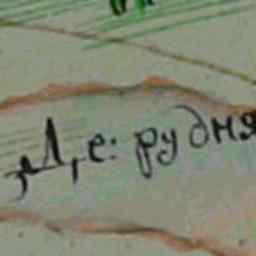 Д,е: рудня